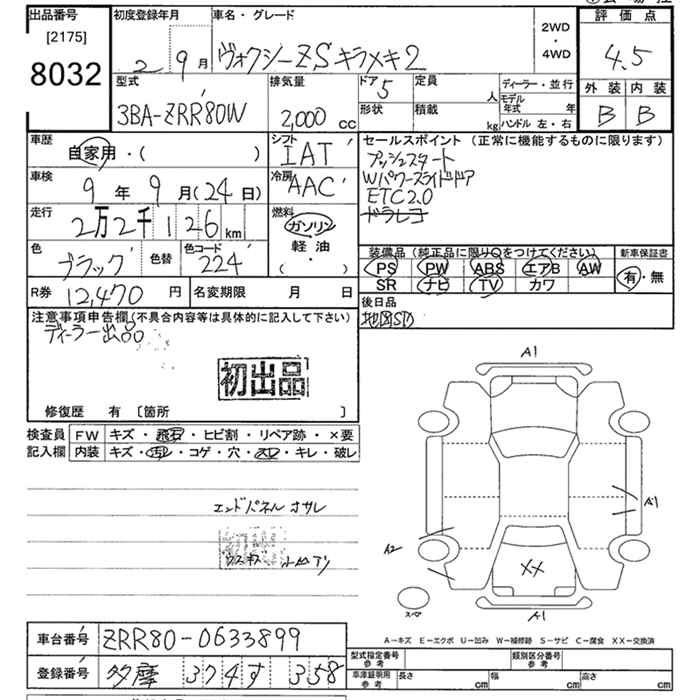 出品番号
[2175]
8032
初度登録年月
2 9月
車名・グレード
ヴォクシーZS キラメキ2
2WD
・
4WD
評価点
4.5
外装 内装
B B
型式
3BA-ZRR80W
排気量
2,000 cc
ドア 5
形状
定員 人
積載 kg
ディーラー・並行
モデル年式 年
ハンドル 左・右
車歴
自家用・( )
シフト
IAT
車検
9年9月(24日)
冷房
AAC
走行
2万2千126km
燃料
ガソリン
軽油
( )
色
ブラック
色替
色コード
224
R券 12,470円
名変期限 月 日
セールスポイント(正常に機能するものに限ります)
プッシュスタート
Wパワースライドドア
ETC2.0
ドラレコ
装備品(純正品に限り○をつけてください)
新車保証書
PS PW ABS エアB AW
SR ナビ TV カワ
有・無
後日品
地図SD
注意事項申告欄(不具合内容等は具体的に記入して下さい)
ディーラー出品
初出品
修復歴 有 [箇所 ]
検査員記入欄
FW キズ・飛石・ヒビ割・リペア跡・×要
内装 キズ・汚レ・コゲ・穴・スレ・キレ・破レ
エンドパネル オサレ
ウスキズ 小凹アリ
A1
A1
A2
XX
スペア
A1
A-キズ E-エクボ U-凹み W-補修跡 S-サビ C-腐食 XX-交換済
車台番号 ZRR80-0633899
登録番号 多摩 374 す 358
型式指定番号 参考
類別区分番号 参考
車庫証明用 参考
長さ cm
幅 cm
高さ cm